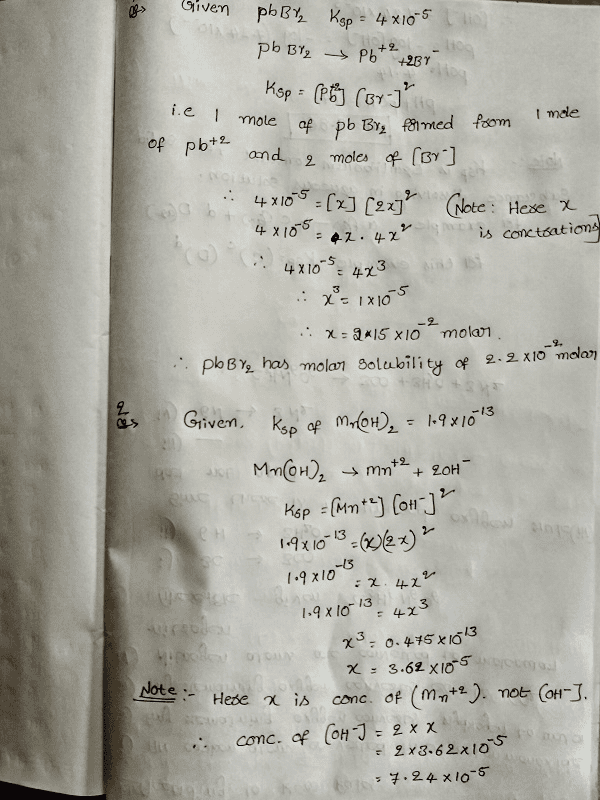 Qs Given pbBr₂ Ksp = 4×10⁻⁵
pbBr₂ → Pb⁺² +2Br⁻
Ksp = [Pb⁺²] [Br⁻]²
i.e 1 mole of pbBr₂ formed from 1 mole
of pb⁺² and 2 moles of [Br⁻]
∴ 4×10⁻⁵ = [x] [2x]² (Note: Here x
4×10⁻⁵ = x. 4x² is conctrations]
∴ 4×10⁻⁵ = 4x³
∴ x³ = 1×10⁻⁵
∴ x = 2.15×10⁻² molar.
∴ pbBr₂ has molar solubility of 2.2×10⁻² molar
2
Qs Given, Ksp of Mn(OH)₂ = 1.9×10⁻¹³
Mn(OH)₂ → mn⁺² + 2OH⁻
Ksp = [Mn⁺²] [OH⁻]²
1.9×10⁻¹³ = (x)(2x)²
1.9×10⁻¹³ = x. 4x²
1.9×10⁻¹³ = 4x³
x³ = 0.475×10⁻¹³
x = 3.62×10⁻⁵
Note :- Here x is conc. of (Mn⁺²). not [OH⁻].
∴ conc. of [OH⁻] = 2 × x
= 2×3.62×10⁻⁵
= 7.24×10⁻⁵